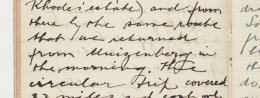 Rhodes' estate) and from
there by the same route
that we returned
from Muizenberg in
the morning. The
circular trip covered
miles and